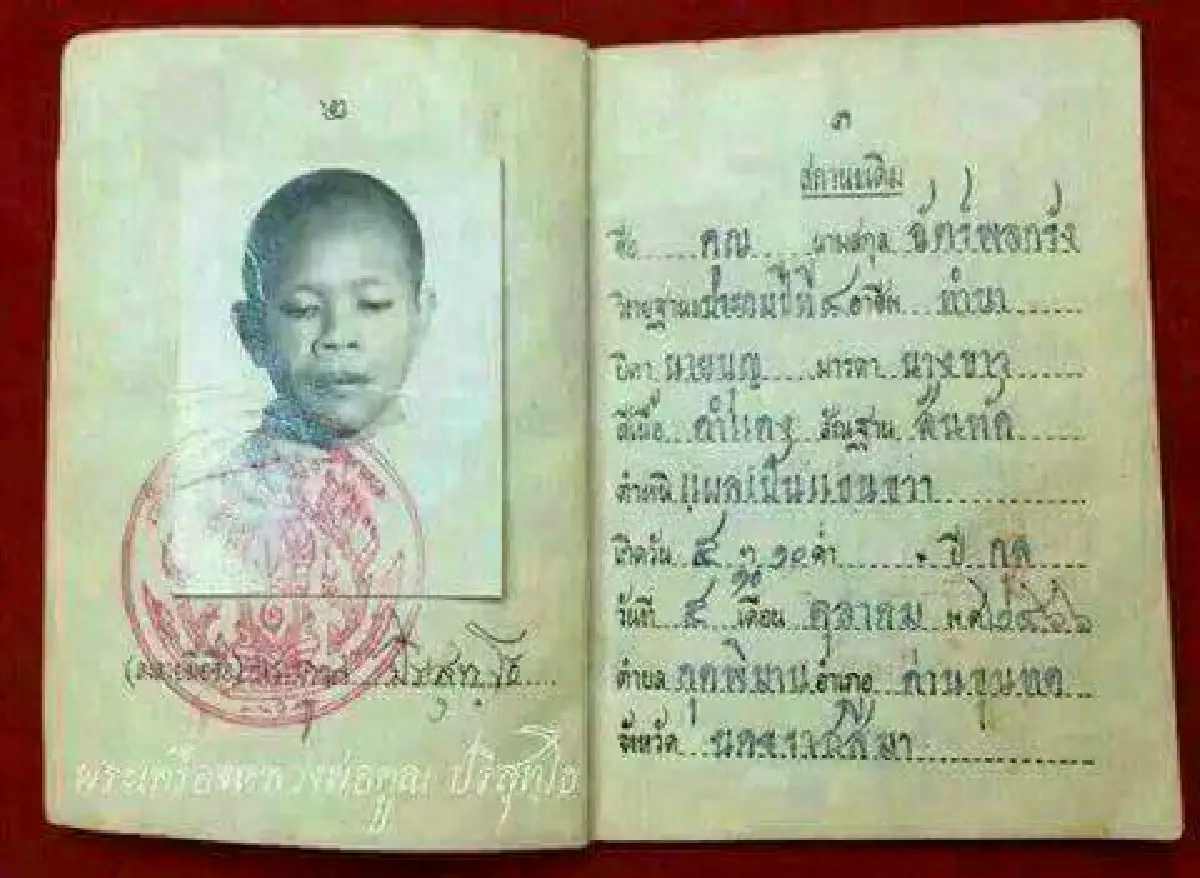 ๒
(ลงลายมือชื่อ) พระคูณ ปริสุทฺโธ
พระเครื่องหลวงพ่อคูณ ปริสุทฺโธ
๓
สถานะเดิม
ชื่อ คุณ นามสกุล ฉัตร์พลกรัง
วิทยฐานะ ประถมปีที่ ๔ อาชีพ ทำนา
บิดา นายบุญ มารดา นางขาว
สีเนื้อ ดำแดง สัณฐาน สันทัด
ตำหนิ แผลเป็นแขนขวา
เกิดวัน ๕ ๑๐ ค่ำ ปี กุล
วันที่ ๔ เดือน ตุลาคม พ.ศ. ๒๔๖๖
ตำบล กุดพิมาน อำเภอ ด่านขุนทด
จังหวัด นครราชสีมา